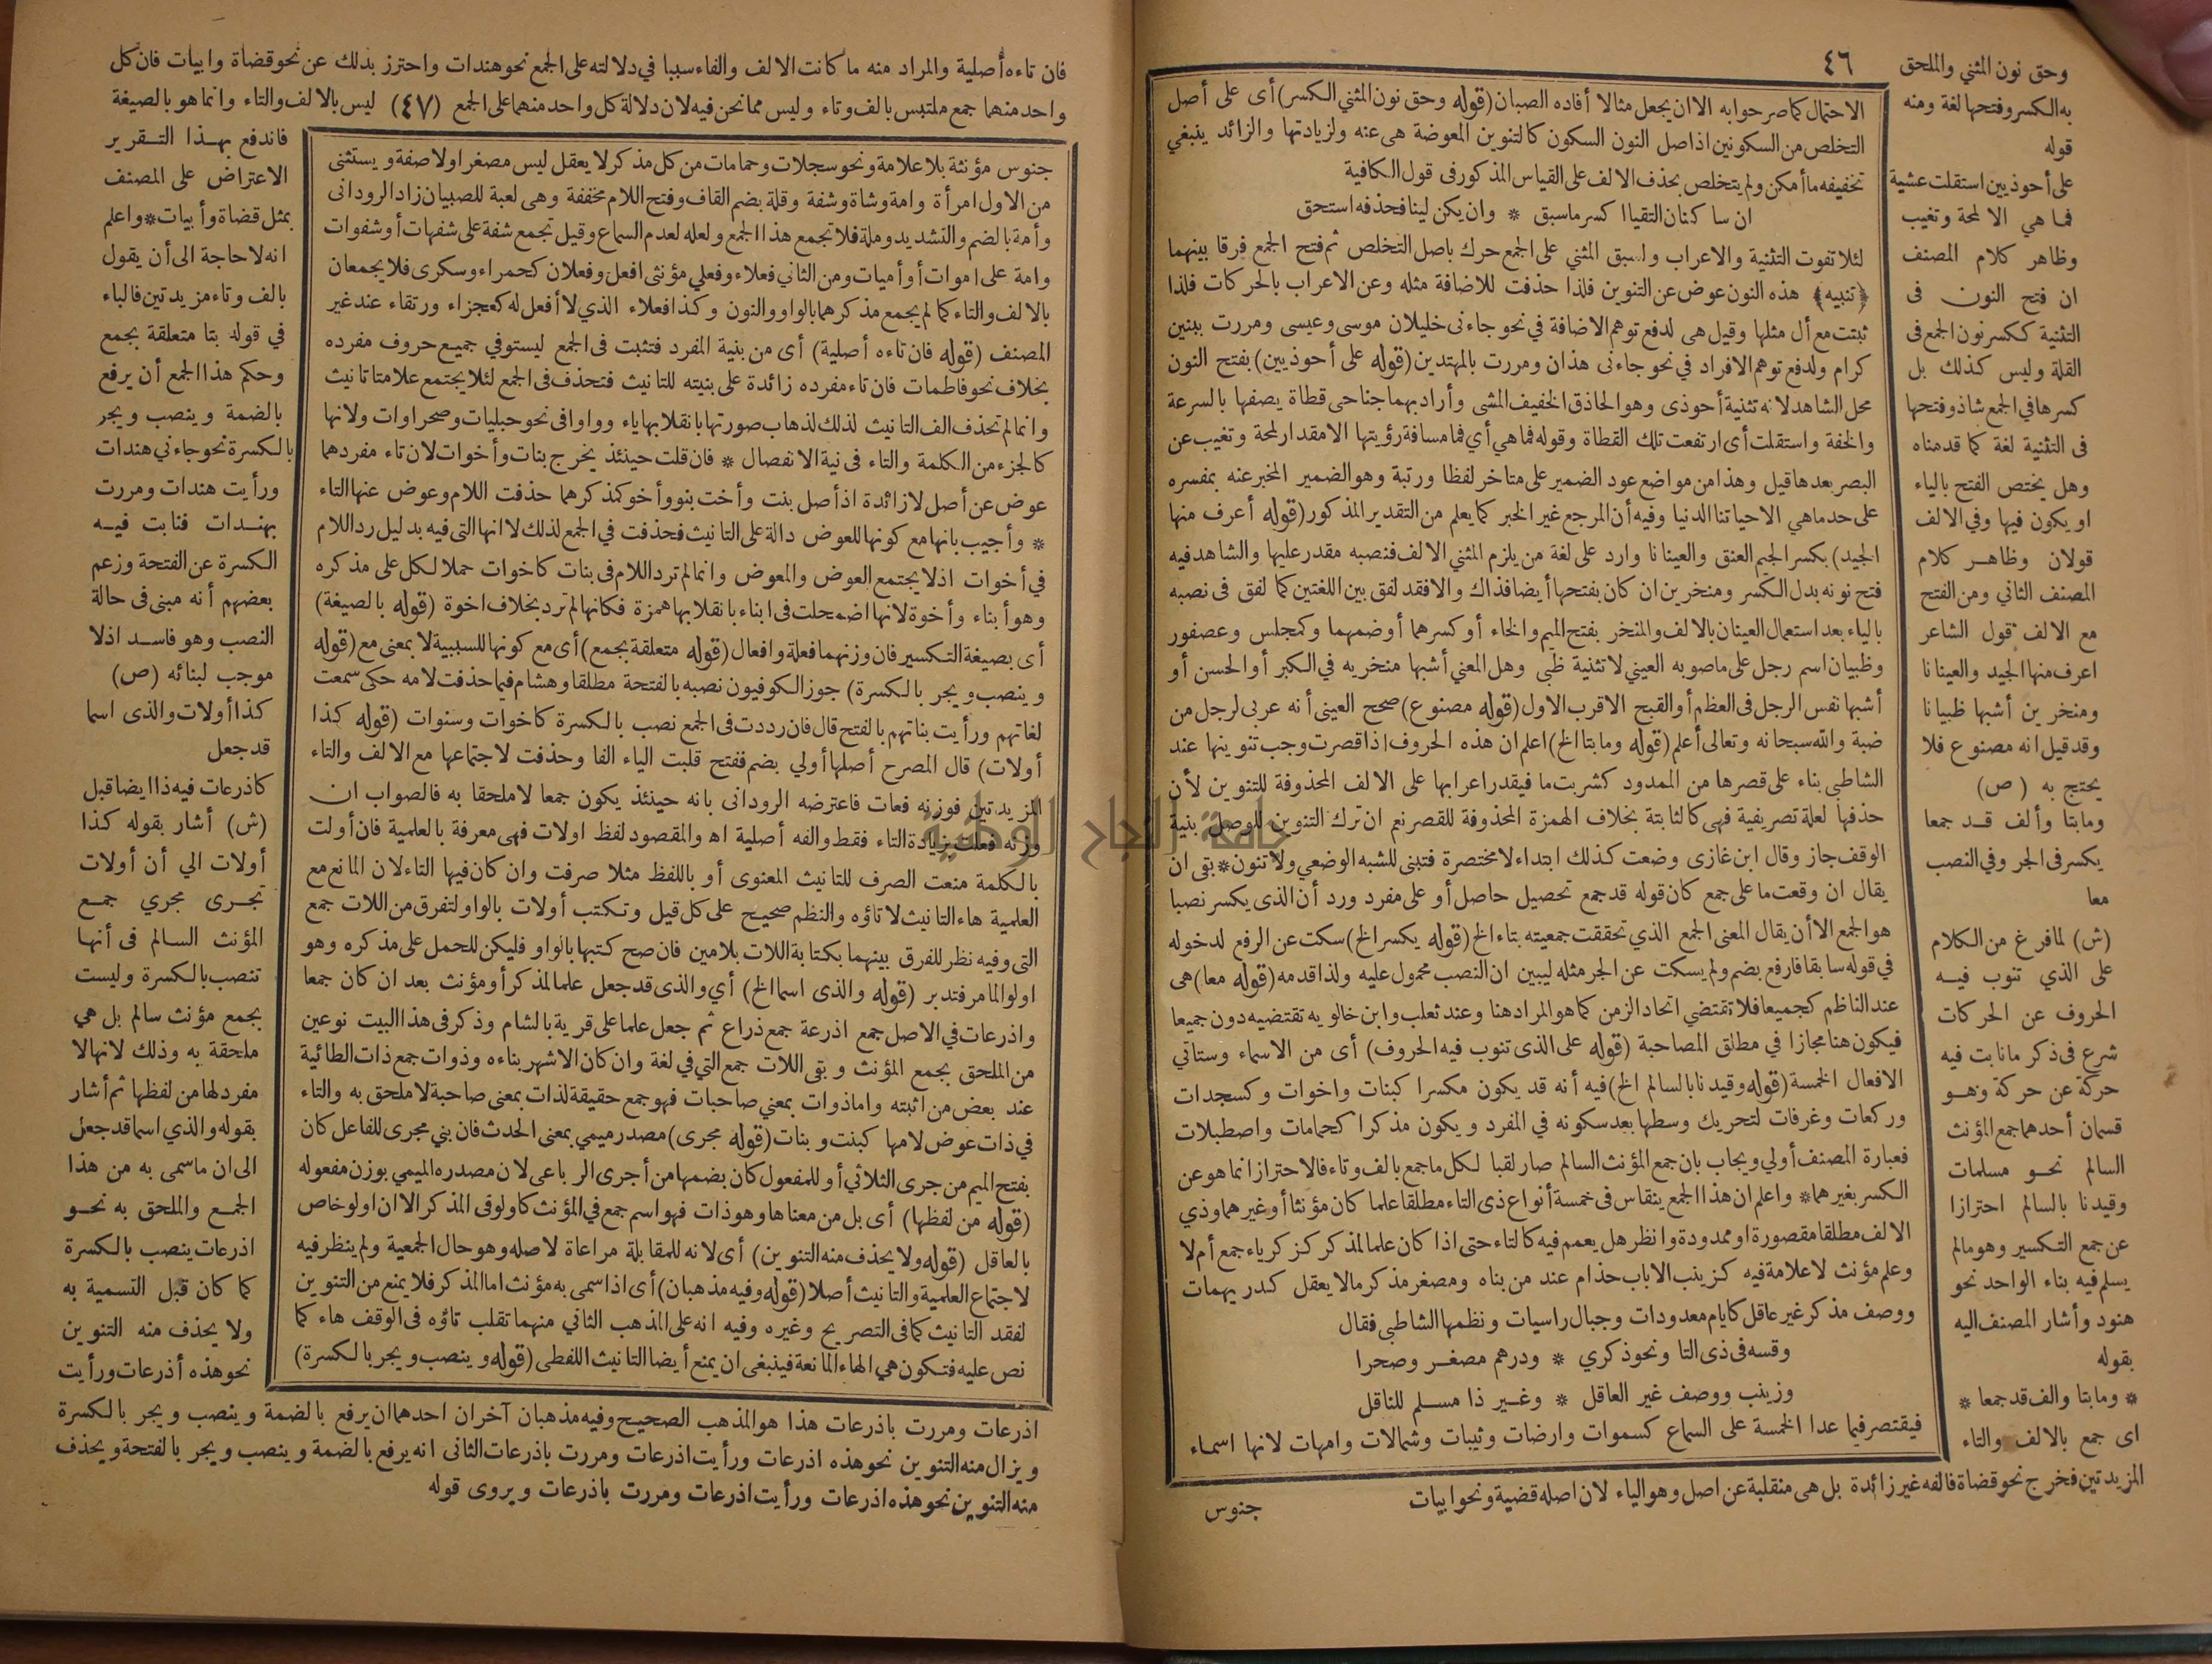 ٤٦
وحق نون المثني والملحق
به الكسر وفتحها لغة ومنه
قوله
على أحوذيين استقلت عشية
فما هي الا لمحة وتغيب
وظاهر كلام المصنف
ان فتح النون فى
التثنية ككسر نون الجمع فى
القلة وليس كذلك بل
كسرها في الجمع شاذ وفتحها
فى التثنية لغة كما قدمناه
وهل يختص الفتح بالياء
او يكون فيها وفي الالف
قولان وظاهر كلام
المصنف الثاني ومن الفتح
مع الالف قول الشاعر
اعرف منها الجيد والعينانا
ومنخرين أشبها ظبيانا
وقد قيل انه مصنوع فلا
يحتج به (ص)
وما بتا وألف قد جمعا
يكسر فى الجر وفي النصب
معا
(ش) لما فرغ من الكلام
على الذي تنوب فيه
الحروف عن الحركات
شرع فى ذكر ما نابت فيه
حركة عن حركة وهو
قسمان أحدهما جمع المؤنث
السالم نحو مسلمات
وقيدنا بالسالم احترازا
عن جمع التكسير وهو مالم
يسلم فيه بناء الواحد نحو
هنود وأشار المصنف اليه
بقوله
* وما بتا والف قد جمعا *
اى جمع بالالف والتاء
المزيدتين فخرج نحو قضاة فالفه غير زائدة بل هى منقلبة عن اصل وهو الياء لان اصله قضية ونحو ابيات
الاحتمال كما صرحوا به الا ان يجعل مثالا أفاده الصبان (قوله وحق نون المثني الكسر) أى على أصل
التخلص من السكونين اذ اصل النون السكون كالتنوين المعوضة هى عنه ولزيادتها والزائد ينبغي
تخفيفه ما أمكن ولم يتخلص بحذف الالف على القياس المذكور فى قول الكافية
ان ساكنان التقيا اكسر ما سبق * وان يكن لينا فحذفه استحق
لئلا تفوت التثنية والاعراب ولسبق المثني على الجمع حرك باصل التخلص ثم فتح الجمع فرقا بينهما
﴿تنبيه﴾ هذه النون عوض عن التنوين فلذا حذفت للاضافة مثله وعن الاعراب بالحركات فلذا
ثبتت مع أل مثلها وقيل هى لدفع توهم الاضافة في نحو جاءنى خليلان موسى وعيسى ومررت ببنين
كرام ولدفع توهم الافراد في نحو جاءنى هذان ومررت بالمهتدين (قوله على أحوذيين) بفتح النون
محل الشاهد لانه تثنية أحوذى وهو الحاذق الخفيف المشى وأراد بهما جناحى قطاة يصفها بالسرعة
والخفة واستقلت أى ارتفعت تلك القطاة وقوله فما هي أي فما مسافة رؤيتها الا مقدار لمحة وتغيب عن
البصر بعدها قيل وهذا من مواضع عود الضمير على متاخر لفظا ورتبة وهو الضمير المخبر عنه بمفسره
على حد ما هي الا حياتنا الدنيا وفيه أن المرجع غير الخبر كما يعلم من التقدير المذكور (قوله أعرف منها
الجيد) بكسر الجيم العنق والعينانا وارد على لغة من يلزم المثني الالف فنصبه مقدر عليها والشاهد فيه
فتح نونه بدل الكسر ومنخرين ان كان بفتحها أيضا فذاك والا فقد لفق بين اللغتين كما لفق فى نصبه
بالياء بعد استعمال العينان بالالف والمنخر بفتح الميم والخاء أو كسرهما أو ضمهما وكمجلس وعصفور
وظبيان اسم رجل على ما صوبه العيني لا تثنية ظبي وهل المعني أشبها منخريه في الكبر أو الحسن أو
أشبها نفس الرجل فى العظم أو القبح الاقرب الاول (قوله مصنوع) صحح العينى أنه عربى لرجل من
ضبة والله سبحانه وتعالى أعلم (قوله وما بتا الخ) اعلم ان هذه الحروف اذا قصرت وجب تنوينها عند
الشاطبي بناء على قصرها من الممدود كشربت ما فيقدر اعرابها على الالف المحذوفة للتنوين لأن
حذفها لعلة تصريفية فهى كالثابتة بخلاف الهمزة المحذوفة للقصر نعم ان ترك التنوين للوصل بنية
الوقف جاز وقال ابن غازى وضعت كذلك ابتداء لا مختصرة فتبنى للشبه الوضعي ولا تنون * بقى ان
يقال ان وقعت ما على جمع كان قوله قد جمع تحصيل حاصل أو على مفرد ورد أن الذى يكسر نصبا
هو الجمع الا أن يقال المعنى الجمع الذي تحققت جمعيته بتاء الخ (قوله يكسر الخ) سكت عن الرفع لدخوله
في قوله سابقا فارفع بضم ولم يسكت عن الجر مثله ليبين ان النصب محمول عليه ولذا قدمه (قوله معا) هى
عند الناظم كجميعا فلا تقتضي اتحاد الزمن كما هو المراد هنا وعند ثعلب وابن خالويه تقتضيه دون جميعا
فيكون هنا مجازا في مطلق المصاحبة (قوله على الذى تنوب فيه الحروف) أى من الاسماء وستاتي
الافعال الخمسة (قوله وقيدنا بالسالم الخ) فيه أنه قد يكون مكسرا كبنات واخوات وكسجدات
وركعات وغرفات لتحريك وسطها بعد سكونه في المفرد ويكون مذكرا كحمامات واصطبلات
فعبارة المصنف أولي ويجاب بان جمع المؤنث السالم صار لقبا لكل ما جمع بالف وتاء فالاحتراز انما هو عن
الكسر بغيرهما * واعلم ان هذا الجمع ينقاس فى خمسة أنواع ذى التاء مطلقا علما كان مؤنثا أو غيرهما وذي
الالف مطلقا مقصورة او ممدودة وانظر هل يعمم فيه كالتاء حتى اذا كان علما لمذكر كزكرياء جمع أم لا
وعلم مؤنث لا علامة فيه كزينب الا باب حذام عند من بناه ومصغر مذكر ما لا يعقل كدريهمات
ووصف مذكر غير عاقل كايام معدودات وجبال راسيات ونظمها الشاطبي فقال
وقسه فى ذى التا ونحو ذكري * ودرهم مصغر وصحرا
وزينب ووصف غير العاقل * وغير ذا مسلم للناقل
فيقتصر فيما عدا الخمسة على السماع كسموات وارضات وثيبات وشمالات وامهات لانها اسماء
جنوس
فان تاءه أصلية والمراد منه ما كانت الالف والفاء سببا في دلالته على الجمع نحو هندات واحترز بذلك عن نحو قضاة وابيات فان كل
واحد منهما جمع ملتبس بالف وتاء وليس مما نحن فيه لان دلالة كل واحد منهما على الجمع (٤٧) ليس بالالف والتاء وانما هو بالصيغة
فاندفع بهذا التقرير
الاعتراض على المصنف
بمثل قضاة وأبيات * واعلم
انه لا حاجة الى أن يقول
بالف وتاء مزيدتين فالباء
في قوله بتا متعلقة بجمع
وحكم هذا الجمع أن يرفع
بالضمة وينصب ويجر
بالكسرة نحو جاءني هندات
ورأيت هندات ومررت
بهندات فنابت فيه
الكسرة عن الفتحة وزعم
بعضهم أنه مبنى فى حالة
النصب وهو فاسد اذ لا
موجب لبنائه (ص)
كذا أولات والذى اسما
قد جعل
كاذرعات فيه ذا ايضا قبل
(ش) أشار بقوله كذا
أولات الي أن أولات
تجرى مجري جمع
المؤنث السالم فى أنها
تنصب بالكسرة وليست
بجمع مؤنث سالم بل هي
ملحقة به وذلك لانها لا
مفرد لها من لفظها ثم أشار
بقوله والذي اسما قد جعل
الى ان ما سمى به من هذا
الجمع والملحق به نحو
اذرعات ينصب بالكسرة
كما كان قبل التسمية به
ولا يحذف منه التنوين
نحو هذه أذرعات ورأيت
جنوس مؤنثة بلا علامة ونحو سجلات وحمامات من كل مذكر لا يعقل ليس مصغرا ولا صفة ويستثنى
من الاول امرأة وامة وشاة وشفة وقلة بضم القاف وفتح اللام مخففة وهى لعبة للصبيان زاد الرودانى
وأمة بالضم والتشديد وملة فلا تجمع هذا الجمع ولعله لعدم السماع وقيل تجمع شفة على شفهات أو شفوات
وامة على اموات أو أميات ومن الثاني فعلاء وفعلي مؤنثى افعل وفعلان كحمراء وسكرى فلا يجمعان
بالالف والتاء كما لم يجمع مذكرهما بالواو والنون وكذا فعلاء الذي لا أفعل له كعجزاء ورتقاء عند غير
المصنف (قوله فان تاءه أصلية) أى من بنية المفرد فتثبت فى الجمع ليستوفي جميع حروف مفرده
بخلاف نحو فاطمات فان تاء مفرده زائدة على بنيته للتانيث فتحذف فى الجمع لئلا يجتمع علامتا تانيث
وانما لم تحذف الف التانيث لذلك لذهاب صورتها بانقلابها ياء وواوا فى نحو حبليات وصحراوات ولانها
كالجزء من الكلمة والتاء فى نية الانفصال * فان قلت حينئذ يخرج بنات وأخوات لان تاء مفردهما
عوض عن أصل لا زائدة اذ أصل بنت وأخت بنو وأخو كذكرهما حذفت اللام وعوض عنها التاء
* وأجيب بانها مع كونها للعوض دالة على التانيث فحذفت في الجمع لذلك لا انها التى فيه بدليل رد اللام
في أخوات اذ لا يجتمع العوض والمعوض وانما لم ترد اللام فى بنات كاخوات حملا لكل على مذكره
وهو أبناء وأخوة لانها اضمحلت فى ابناء بانقلابها همزة فكانها لم ترد بخلاف اخوة (قوله بالصيغة)
أى بصيغة التكسير فان وزنهما فعلة وافعال (قوله متعلقة بجمع) أى مع كونها للسببية لا بمعنى مع (قوله
وينصب ويجر بالكسرة) جوز الكوفيون نصبه بالفتحة مطلقا وهشام فيما حذفت لامه حكى سمعت
لغاتهم ورأيت بناتهم بالفتح قال فان رددت فى الجمع نصب بالكسرة كاخوات وسنوات (قوله كذا
أولات) قال المصرح أصلها أولي بضم ففتح قلبت الياء الفا وحذفت لاجتماعها مع الالف والتاء
المزيدتين فوزنه فعات فاعترضه الرودانى بانه حينئذ يكون جمعا لا ملحقا به فالصواب ان
وزنه فعلت بزيادة التاء فقط والفه أصلية اه والمقصود لفظ اولات فهى معرفة بالعلمية فان أولت
بالكلمة منعت الصرف للتانيث المعنوى أو باللفظ مثلا صرفت وان كان فيها التاء لان المانع مع
العلمية هاء التانيث لا تاؤه والنظم صحيح على كل قيل وتكتب أولات بالواو لتفرق من اللات جمع
التى وفيه نظر للفرق بينهما بكتابة اللات بلامين فان صح كتبها بالواو فليكن للحمل على مذكره وهو
اولو المامر فتدبر (قوله والذى اسما الخ) أي والذى قد جعل علما لمذكر أو مؤنث بعد ان كان جمعا
واذرعات في الاصل جمع اذرعة جمع ذراع ثم جعل علما على قرية بالشام وذكر فى هذا البيت نوعين
من الملحق بجمع المؤنث وبقى اللات جمع التي في لغة وان كان الاشهر بناءه وذوات جمع ذات الطائية
عند بعض من اثبته واما ذوات بمعني صاحبات فهو جمع حقيقة لذات بمعنى صاحبة لا ملحق به والتاء
في ذات عوض لامها كبنت وبنات (قوله مجرى) مصدر ميمي بمعنى الحدث فان بني مجرى للفاعل كان
بفتح الميم من جرى الثلاثي أو للمفعول كان بضمها من أجرى الرباعى لان مصدره الميمي بوزن مفعوله
(قوله من لفظها) أى بل من معناها وهو ذات فهو اسم جمع في المؤنث كاولو فى المذكر الا ان اولو خاص
بالعاقل (قوله ولا يحذف منه التنوين) أى لانه للمقابلة مراعاة لاصله وهو حال الجمعية ولم ينظر فيه
لاجتماع العلمية والتانيث أصلا (قوله وفيه مذهبان) أى اذا سمى به مؤنث اما المذكر فلا يمنع من التنوين
لفقد التانيث كما فى التصريح وغيره وفيه انه على المذهب الثاني منهما تقلب تاؤه فى الوقف هاء كما
نص عليه فتكون هي الهاء المانعة فينبغى ان يمنع أيضا التانيث اللفطى (قوله وينصب ويجر بالكسرة)
اذرعات ومررت باذرعات هذا هو المذهب الصحيح وفيه مذهبان آخران احدهما ان يرفع بالضمة وينصب ويجر بالكسرة
ويزال منه التنوين نحو هذه اذرعات ورأيت اذرعات ومررت باذرعات الثانى انه يرفع بالضمة وينصب ويجر بالفتحة ويحذف
منه التنوين نحو هذه اذرعات ورأيت اذرعات ومررت باذرعات ويروى قوله
جامعة النجاح الوطنية